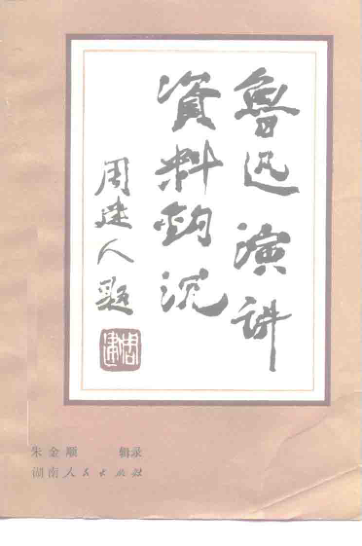 魯迅演讲
資料鈎沉
周建人题
周建
朱金顺 辑录
湖南人民出版社